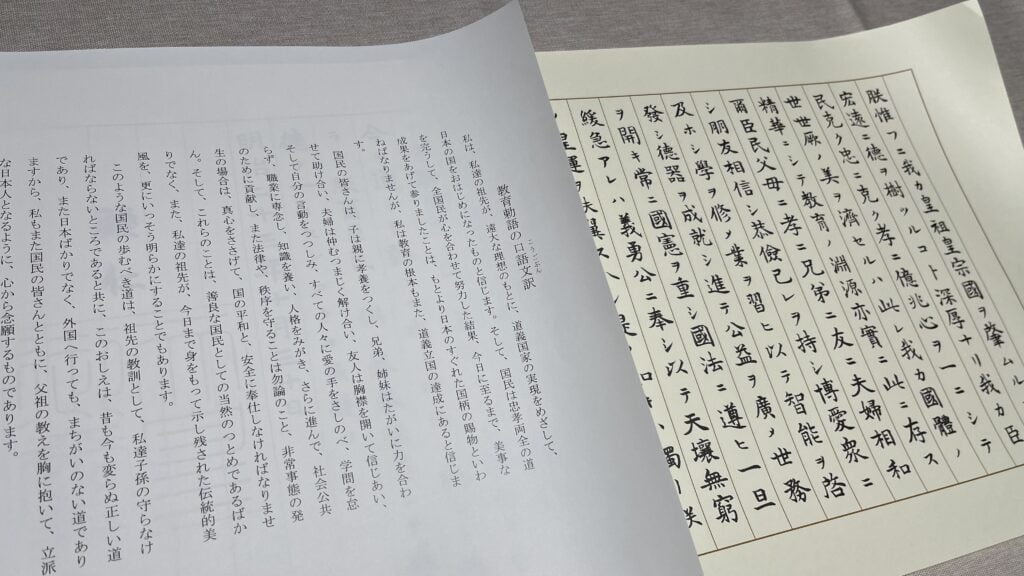 朕惟フニ我カ皇祖皇宗國ヲ肇ムル
宏遠ニ德ヲ樹ツルコト深厚ナリ我カ臣
民克ク忠ニ克ク孝ニ億兆心ヲ一ニシテ
世世厥ノ美ヲ濟セルハ此レ我カ國體ノ
精華ニシテ教育ノ淵源亦實ニ此ニ存ス
爾臣民父母ニ孝ニ兄弟ニ友ニ夫婦相和
シ朋友相信シ恭儉己レヲ持シ博愛衆ニ
及ホシ學ヲ修メ業ヲ習ヒ以テ智能ヲ啓
發シ德器ヲ成就シ進テ公益ヲ廣メ世務
ヲ開キ常ニ國憲ヲ重シ國法ニ遵ヒ一旦
緩急アレハ義勇公ニ奉シ以テ天壤無窮
皇運ヲ
教育勅語の口語文訳
私は、私達の祖先が、遠大な理想のもとに、道義国家の実現をめざして、
日本の国をおはじめになったものと信じます。そして、国民は忠孝両全の道
を完うして、全国民が心を合わせて努力した結果、今日に至るまで、美事な
成果をあげて参りましたことは、もとより日本のすぐれた国柄の賜物といわ
ねばなりませんが、私は教育の根本もまた、道義立国の達成にあると信じま
す。
国民の皆さんは、子は親に孝養をつくし、兄弟、姉妹はたがいに力を合わ
せて助け合い、夫婦は仲むつまじく解け合い、友人は胸襟を開いて信じあい、
そして自分の言動をつつしみ、すべての人々に愛の手をさしのべ、学問を怠
らず、職業に専念し、知識を養い、人格をみがき、さらに進んで、社会公共
のために貢献し、また法律や、秩序を守ることは勿論のこと、非常事態の発
生の場合は、真心をささげて、国の平和と、安全に奉仕しなければなりませ
ん。そして、これらのことは、善良な国民としての当然のつとめであるばか
りでなく、また、私達の祖先が、今日まで身をもって示し残された伝統的美
風を、更にいっそう明らかにすることでもあります。
このような国民の歩むべき道は、祖先の教訓として、私達子孫の守らなけ
ればならないところであると共に、このおしえは、昔も今も変らぬ正しい道
であり、また日本ばかりでなく、外国へ行っても、まちがいのない道であり
ますから、私もまた国民の皆さんとともに、父祖の教えを胸に抱いて、立派
な日本人となるように、心から念願するものであります。